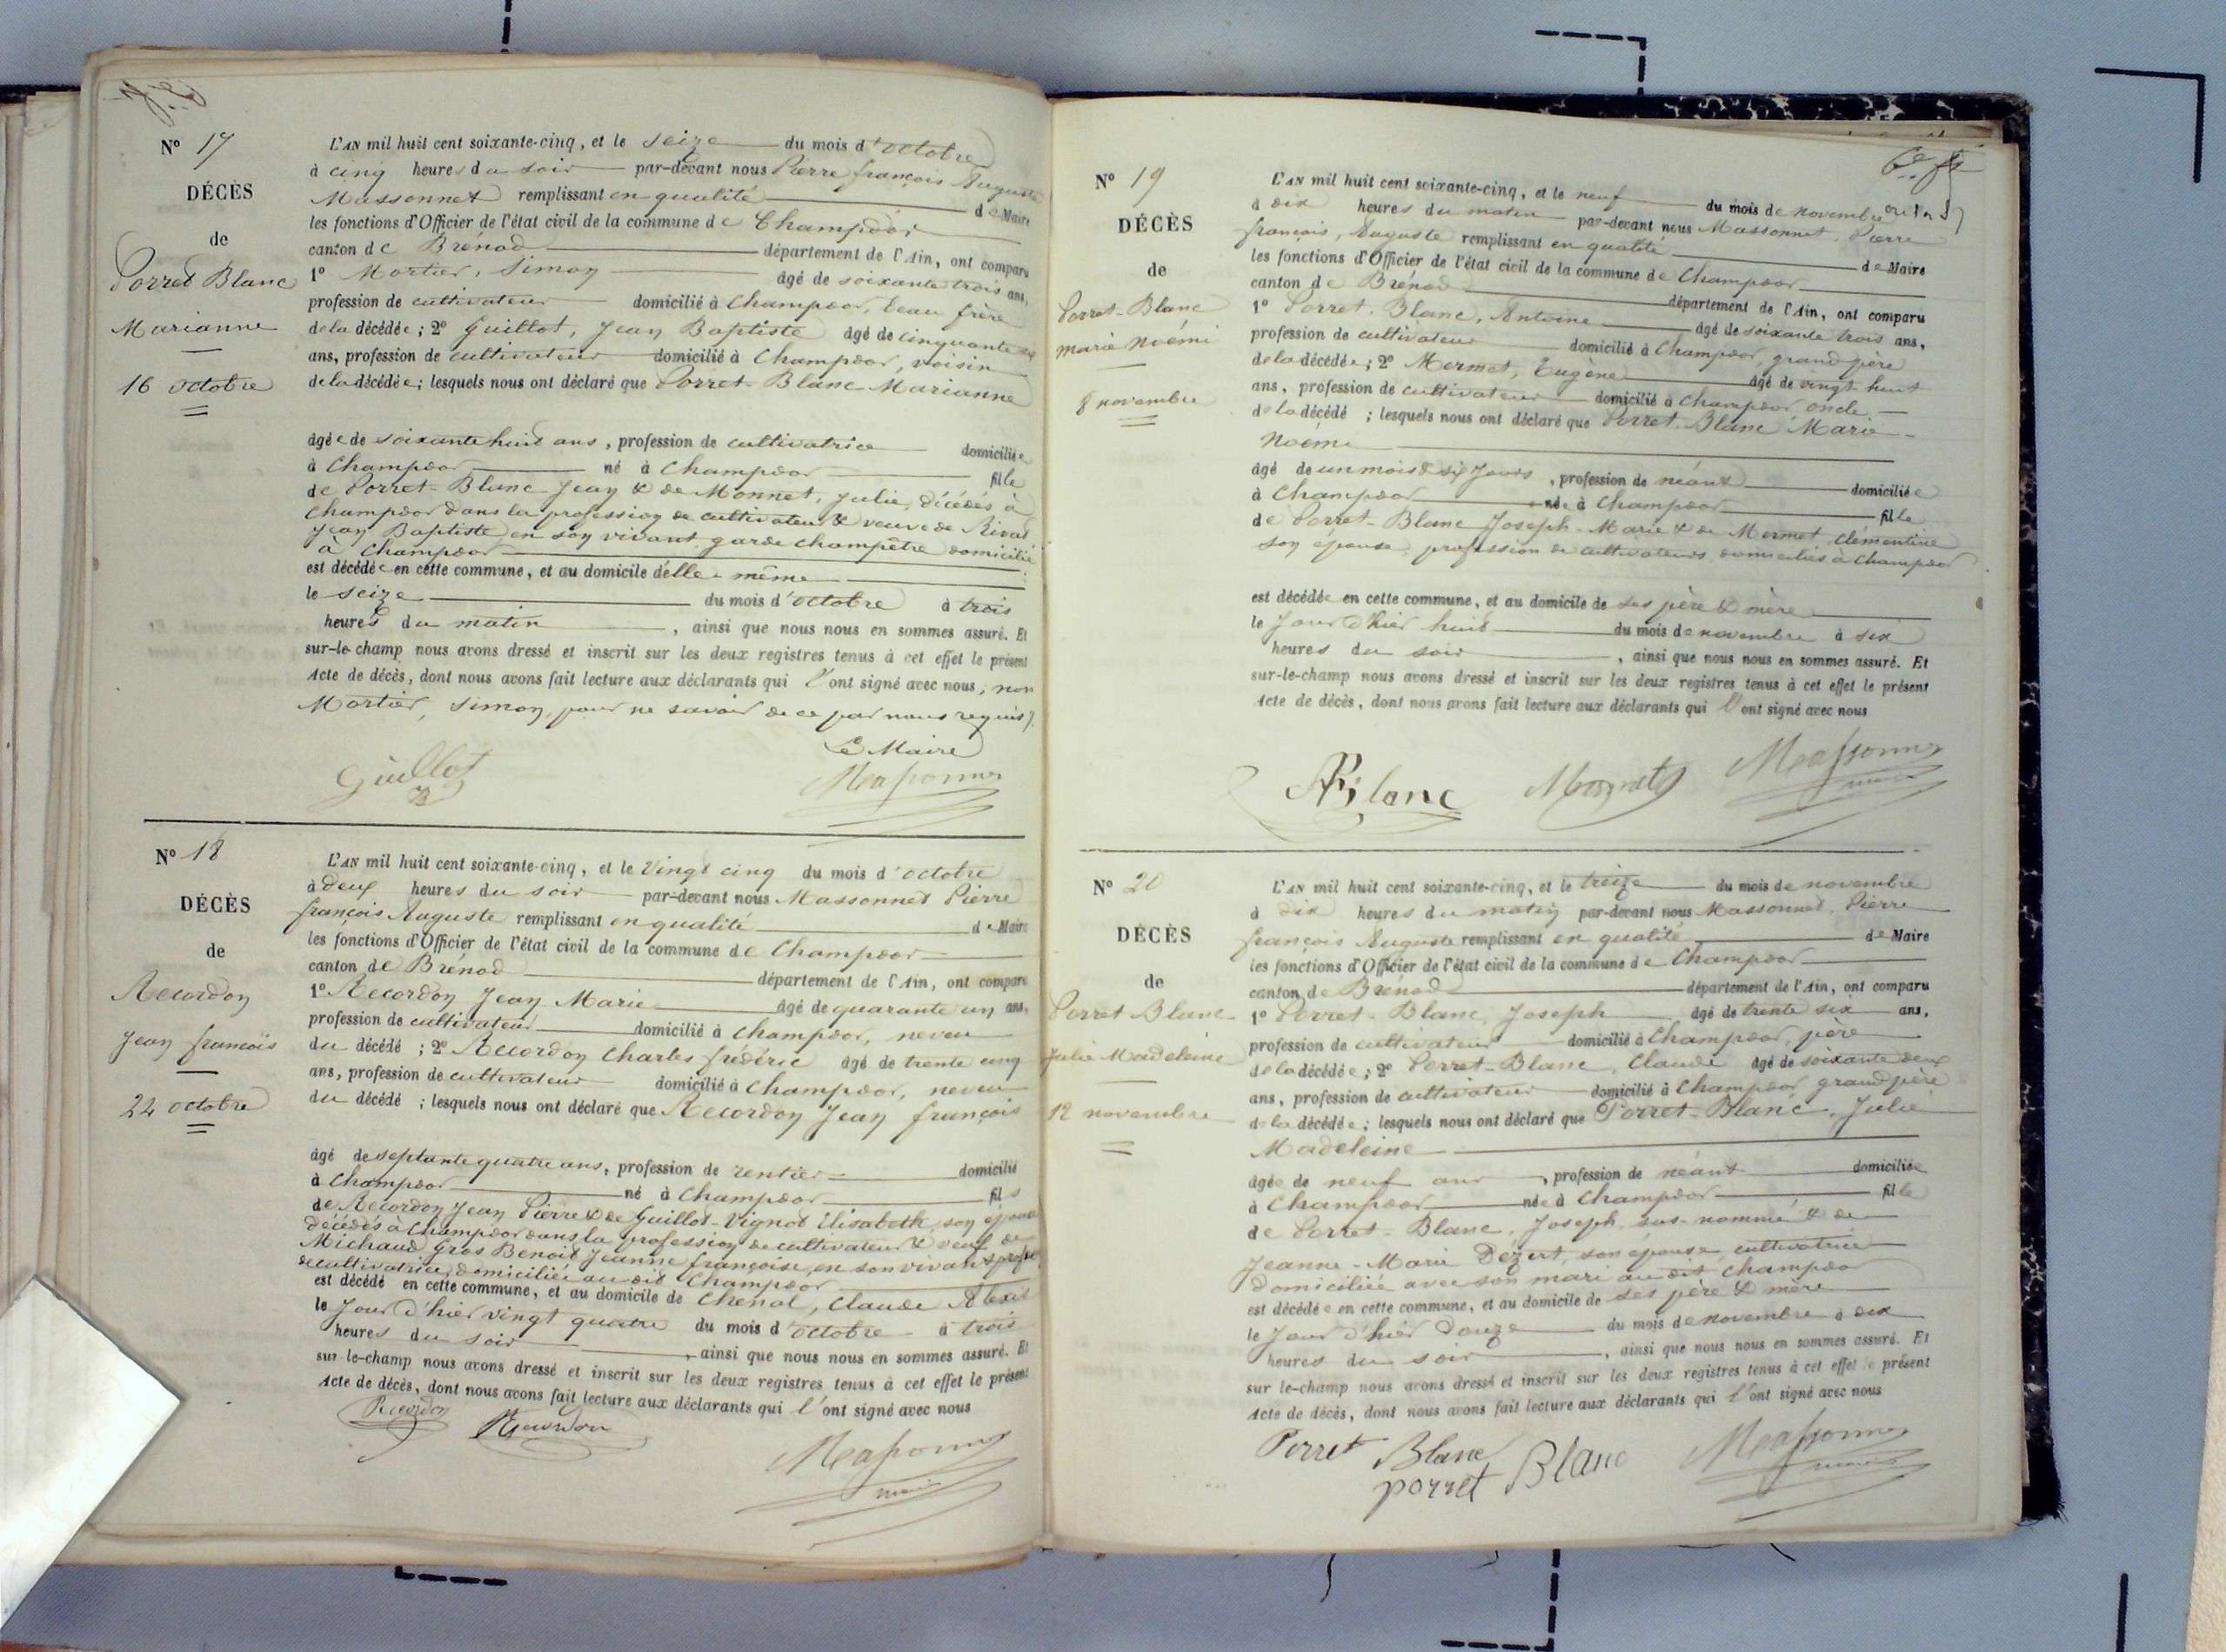 N° 17
DÉCÈS
de
Porret Blanc
Marianne
16 octobre
L'AN mil huit cent soixante-cinq, et le seize du mois d'octobre
à cinq heures du soir par-devant nous Pierre françois Auguste
Massonnet remplissant en qualité de Maire
les fonctions d'Officier de l'état civil de la commune de Champdor
canton de Brenod département de l'Ain, ont comparu
1° Mortier, Simon âgé de soixante trois ans,
profession de cultivateur domicilié à Champdor, beau frère
de la décédée; 2° Guillot, Jean Baptiste âgé de cinquante six
ans, profession de cultivateur domicilié à Champdor, voisin
de la décédée; lesquels nous ont déclaré que Porret-Blanc Marianne
âgée de soixante huit ans, profession de cultivatrice domiciliée
à Champdor né à Champdor fille
de Porret-Blanc Jean & de Monnet, Julie, décédés à
Champdor dans la profession de cultivateur & veuve de Rivat
Jean Baptiste en son vivant garde champêtre domicilié
à Champdor
est décédée en cette commune, et au domicile d'elle-même
le seize du mois d'octobre à trois
heures du matin, ainsi que nous nous en sommes assuré. Et
sur-le-champ nous avons dressé et inscrit sur les deux registres tenus à cet effet le présent
Acte de décès, dont nous avons fait lecture aux déclarants qui l'ont signé avec nous, non
Mortier, Simon, pour ne savoir de ce par nous requis.
Le Maire
Guillot
JB
Massonnet
N° 18
DÉCÈS
de
Recordon
Jean francois
24 octobre
L'AN mil huit cent soixante-cinq, et le Vingt cinq du mois d'octobre
à deux heures du soir par-devant nous Massonnet Pierre
françois Auguste remplissant en qualité de Maire
les fonctions d'Officier de l'état civil de la commune de Champdor
canton de Brénod département de l'Ain, ont comparu
1° Recordon Jean Marie âgé de quarante un ans,
profession de cultivateur domicilié à Champdor, neveu
du décédé; 2° Recordon Charles frédéric âgé de trente cinq
ans, profession de cultivateur domicilié à Champdor, neveu
du décédé; lesquels nous ont déclaré que Recordon Jean françois
âgé de septante quatre ans, profession de rentier domicilié
à Champdor né à Champdor fils
de Recordon Jean Pierre & de Guillot-Vignot Elisabeth, son épouse
décédés à Champdor dans la profession de cultivateur & veuf de
Michaud Gros Benoit Jeanne françoise, en son vivant profession
de cultivatrice, domiciliée au dit Champdor
est décédé en cette commune, et au domicile de Chenal, Claude Alexis
le Jour d'hier vingt quatre du mois d'octobre à trois
heures du soir, ainsi que nous nous en sommes assuré. Et
sur-le-champ nous avons dressé et inscrit sur les deux registres tenus à cet effet le présent
Acte de décès, dont nous avons fait lecture aux déclarants qui l'ont signé avec nous
Recordon Recordon
Massonnet
maire
N° 19
DÉCÈS
de
Porret-Blanc
marie Noémi
8 novembre
L'AN mil huit cent soixante-cinq, et le neuf du mois de novembre
à dix heures du matin par-devant nous Massonnet, Pierre
françois, Auguste remplissant en qualité de Maire
les fonctions d'Officier de l'état civil de la commune de Champdor
canton de Brénod département de l'Ain, ont comparu
1° Porret-Blanc, Antoine âgé de soixante trois ans,
profession de cultivateur domicilié à Champdor, grand père
de la décédée; 2° Mermet, Eugène âgé de vingt-huit
ans, profession de cultivateur domicilié à Champdor oncle
de la décédé; lesquels nous ont déclaré que Porret-Blanc Marie-
Noémi
âgé de un mois & six Jours, profession de néant domiciliée
à Champdor née à Champdor fille
de Porret-Blanc Joseph-Marie & de Mermet Clémentine
son épouse, profession de cultivateurs domiciliés à Champdor
est décédée en cette commune, et au domicile de ses père & mère
le Jour d'hier huit du mois de novembre à six
heures du soir, ainsi que nous nous en sommes assuré. Et
sur-le-champ nous avons dressé et inscrit sur les deux registres tenus à cet effet le présent
Acte de décès, dont nous avons fait lecture aux déclarants qui l'ont signé avec nous
Blanc Mermet Massonnet
maire
N° 20
DÉCÈS
de
Porret Blanc
Julie Madeleine
12 novembre
L'AN mil huit cent soixante-cinq, et le treize du mois de novembre
à dix heures du matin par-devant nous Massonnet, Pierre
françois Auguste remplissant en qualité de Maire
les fonctions d'Officier de l'état civil de la commune de Champdor
canton de Brénod département de l'Ain, ont comparu
1° Porret-Blanc, Joseph âgé de trente six ans,
profession de cultivateur domicilié à Champdor, père
de la décédée; 2° Porret-Blanc, Claude âgé de soixante deux
ans, profession de cultivateur domicilié à Champdor grand père
de la décédée; lesquels nous ont déclaré que Porret-Blanc, Julie
Madeleine
âgée de neuf ans, profession de néant domiciliée
à Champdor née à Champdor fille
de Porret-Blanc, Joseph sus-nommé & de
Jeanne-Marie Dézert, son épouse, cultivatrice
domiciliée avec son mari au dit Champdor
est décédée en cette commune, et au domicile de ses père & mère
le Jour d'hier Douze du mois de novembre à dix
heures du soir, ainsi que nous nous en sommes assuré. Et
sur-le-champ nous avons dressé et inscrit sur les deux registres tenus à cet effet le présent
Acte de décès, dont nous avons fait lecture aux déclarants qui l'ont signé avec nous
Porret Blanc Massonnet
porret Blanc maire